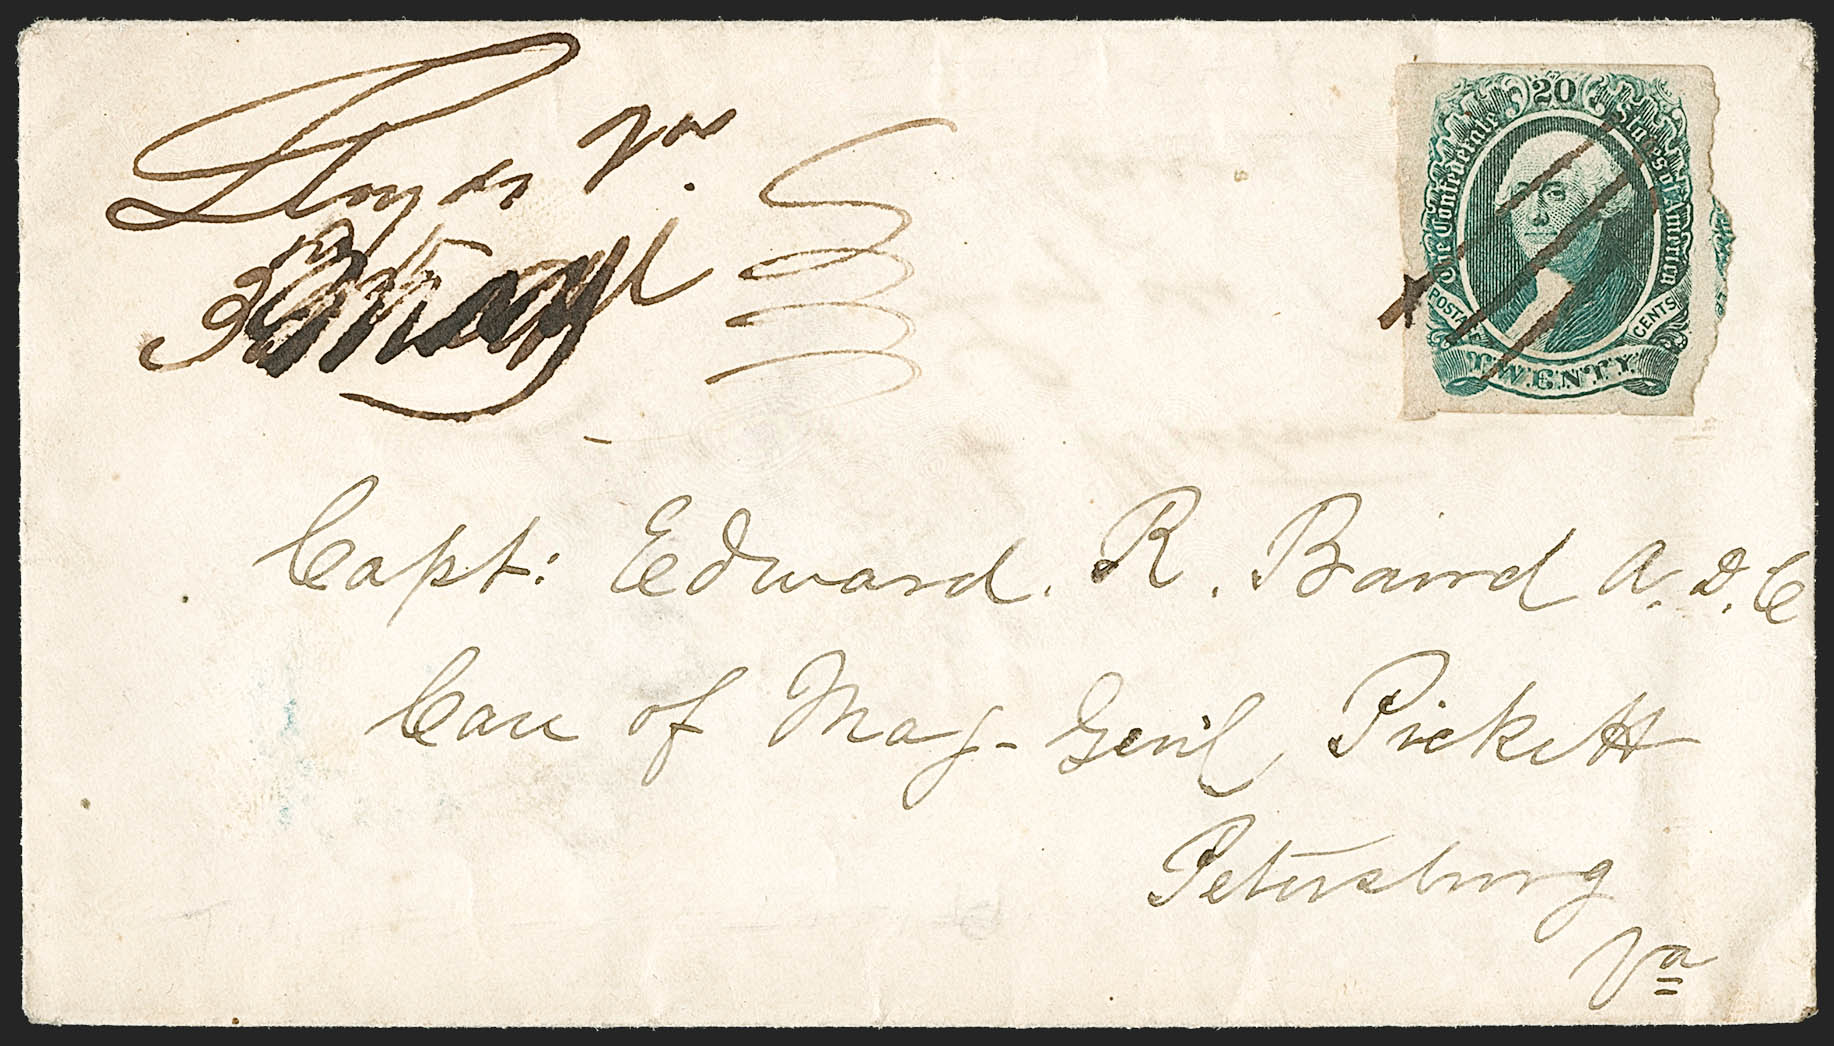 Lloyds Va.
20
The Confederate States of America
POSTAGE CENTS
TWENTY
Capt: Edward. R. Baird A. D. C
Care of Maj- Genl Pickett
Petersburg
Va